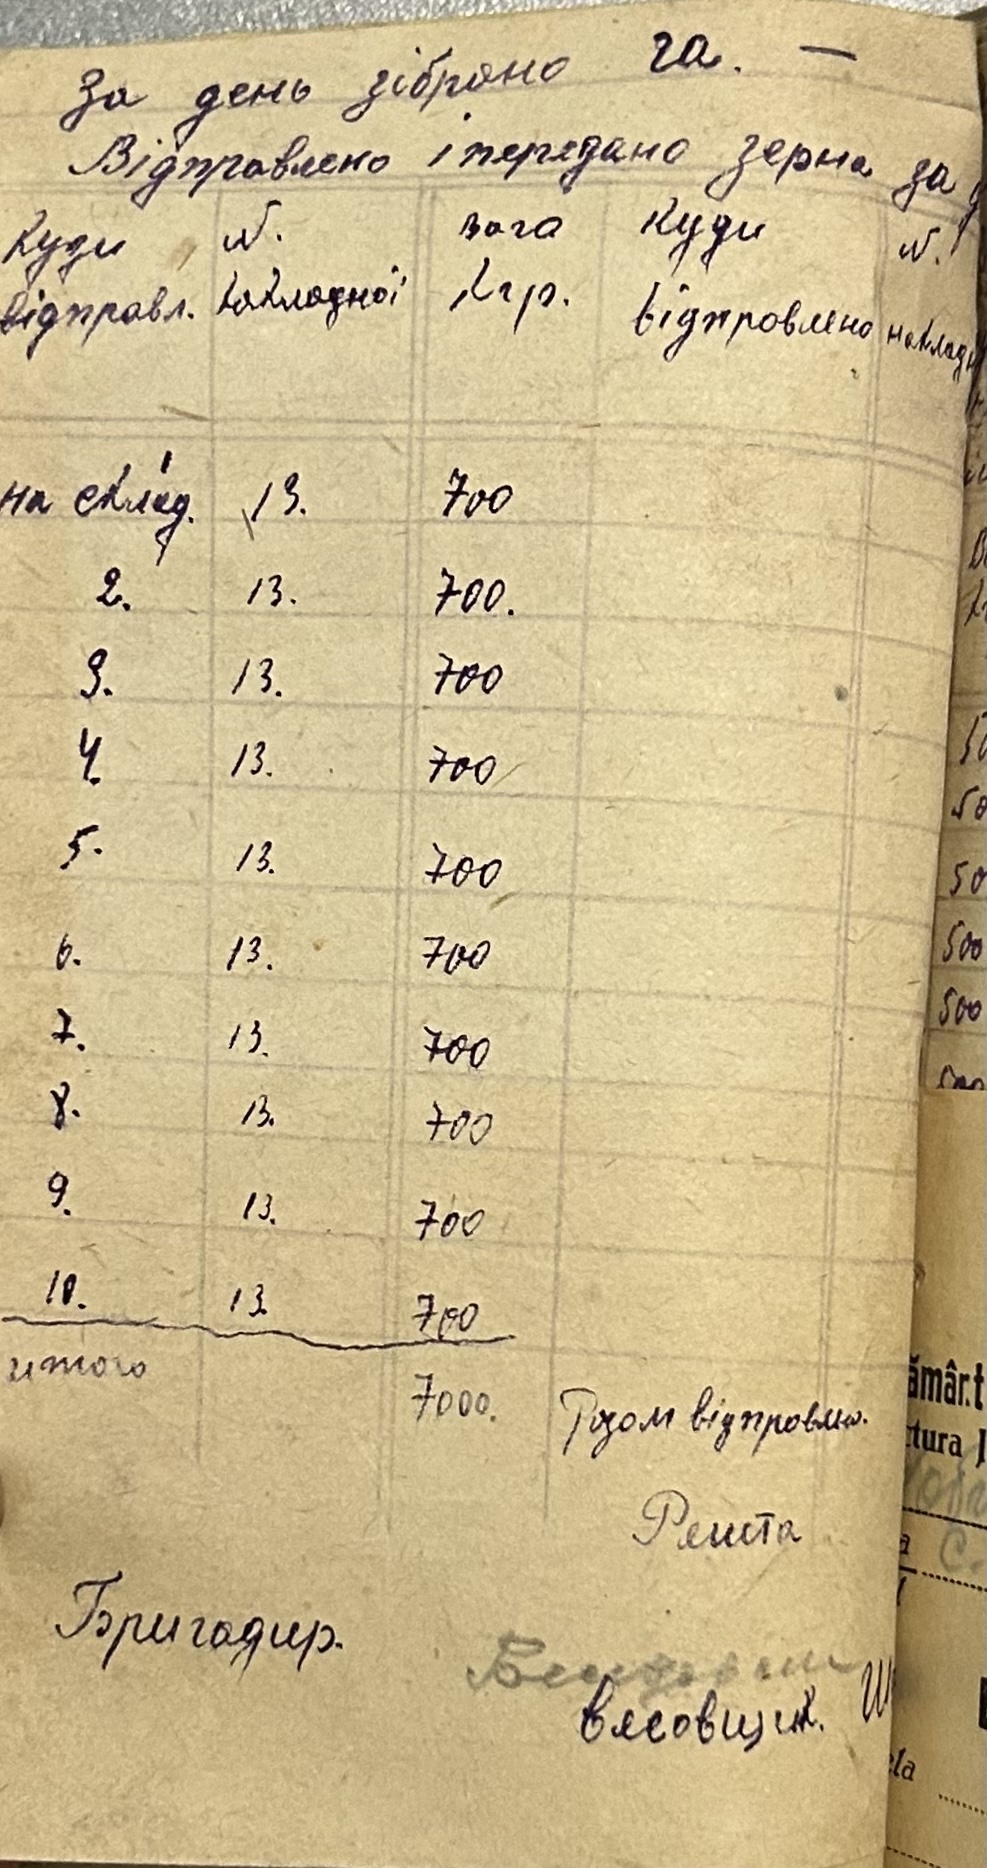 За день зібрано га. —
Відправлено і передано зерна за
Куди N. вага Куди N.
відправл. накладної кгр. відправлено накладн
на склад. 13. 700
2. 13. 700.
3. 13. 700
4. 13. 700
5. 13. 700
6. 13. 700
7. 13. 700
8. 13. 700
9. 13. 700
10. 13. 700
итого 7000. Разом відправлен.
Решта
Бригадир.
весовщик.
50
50
50
500
500
500
ămâr.t
rtura
a C.
ela